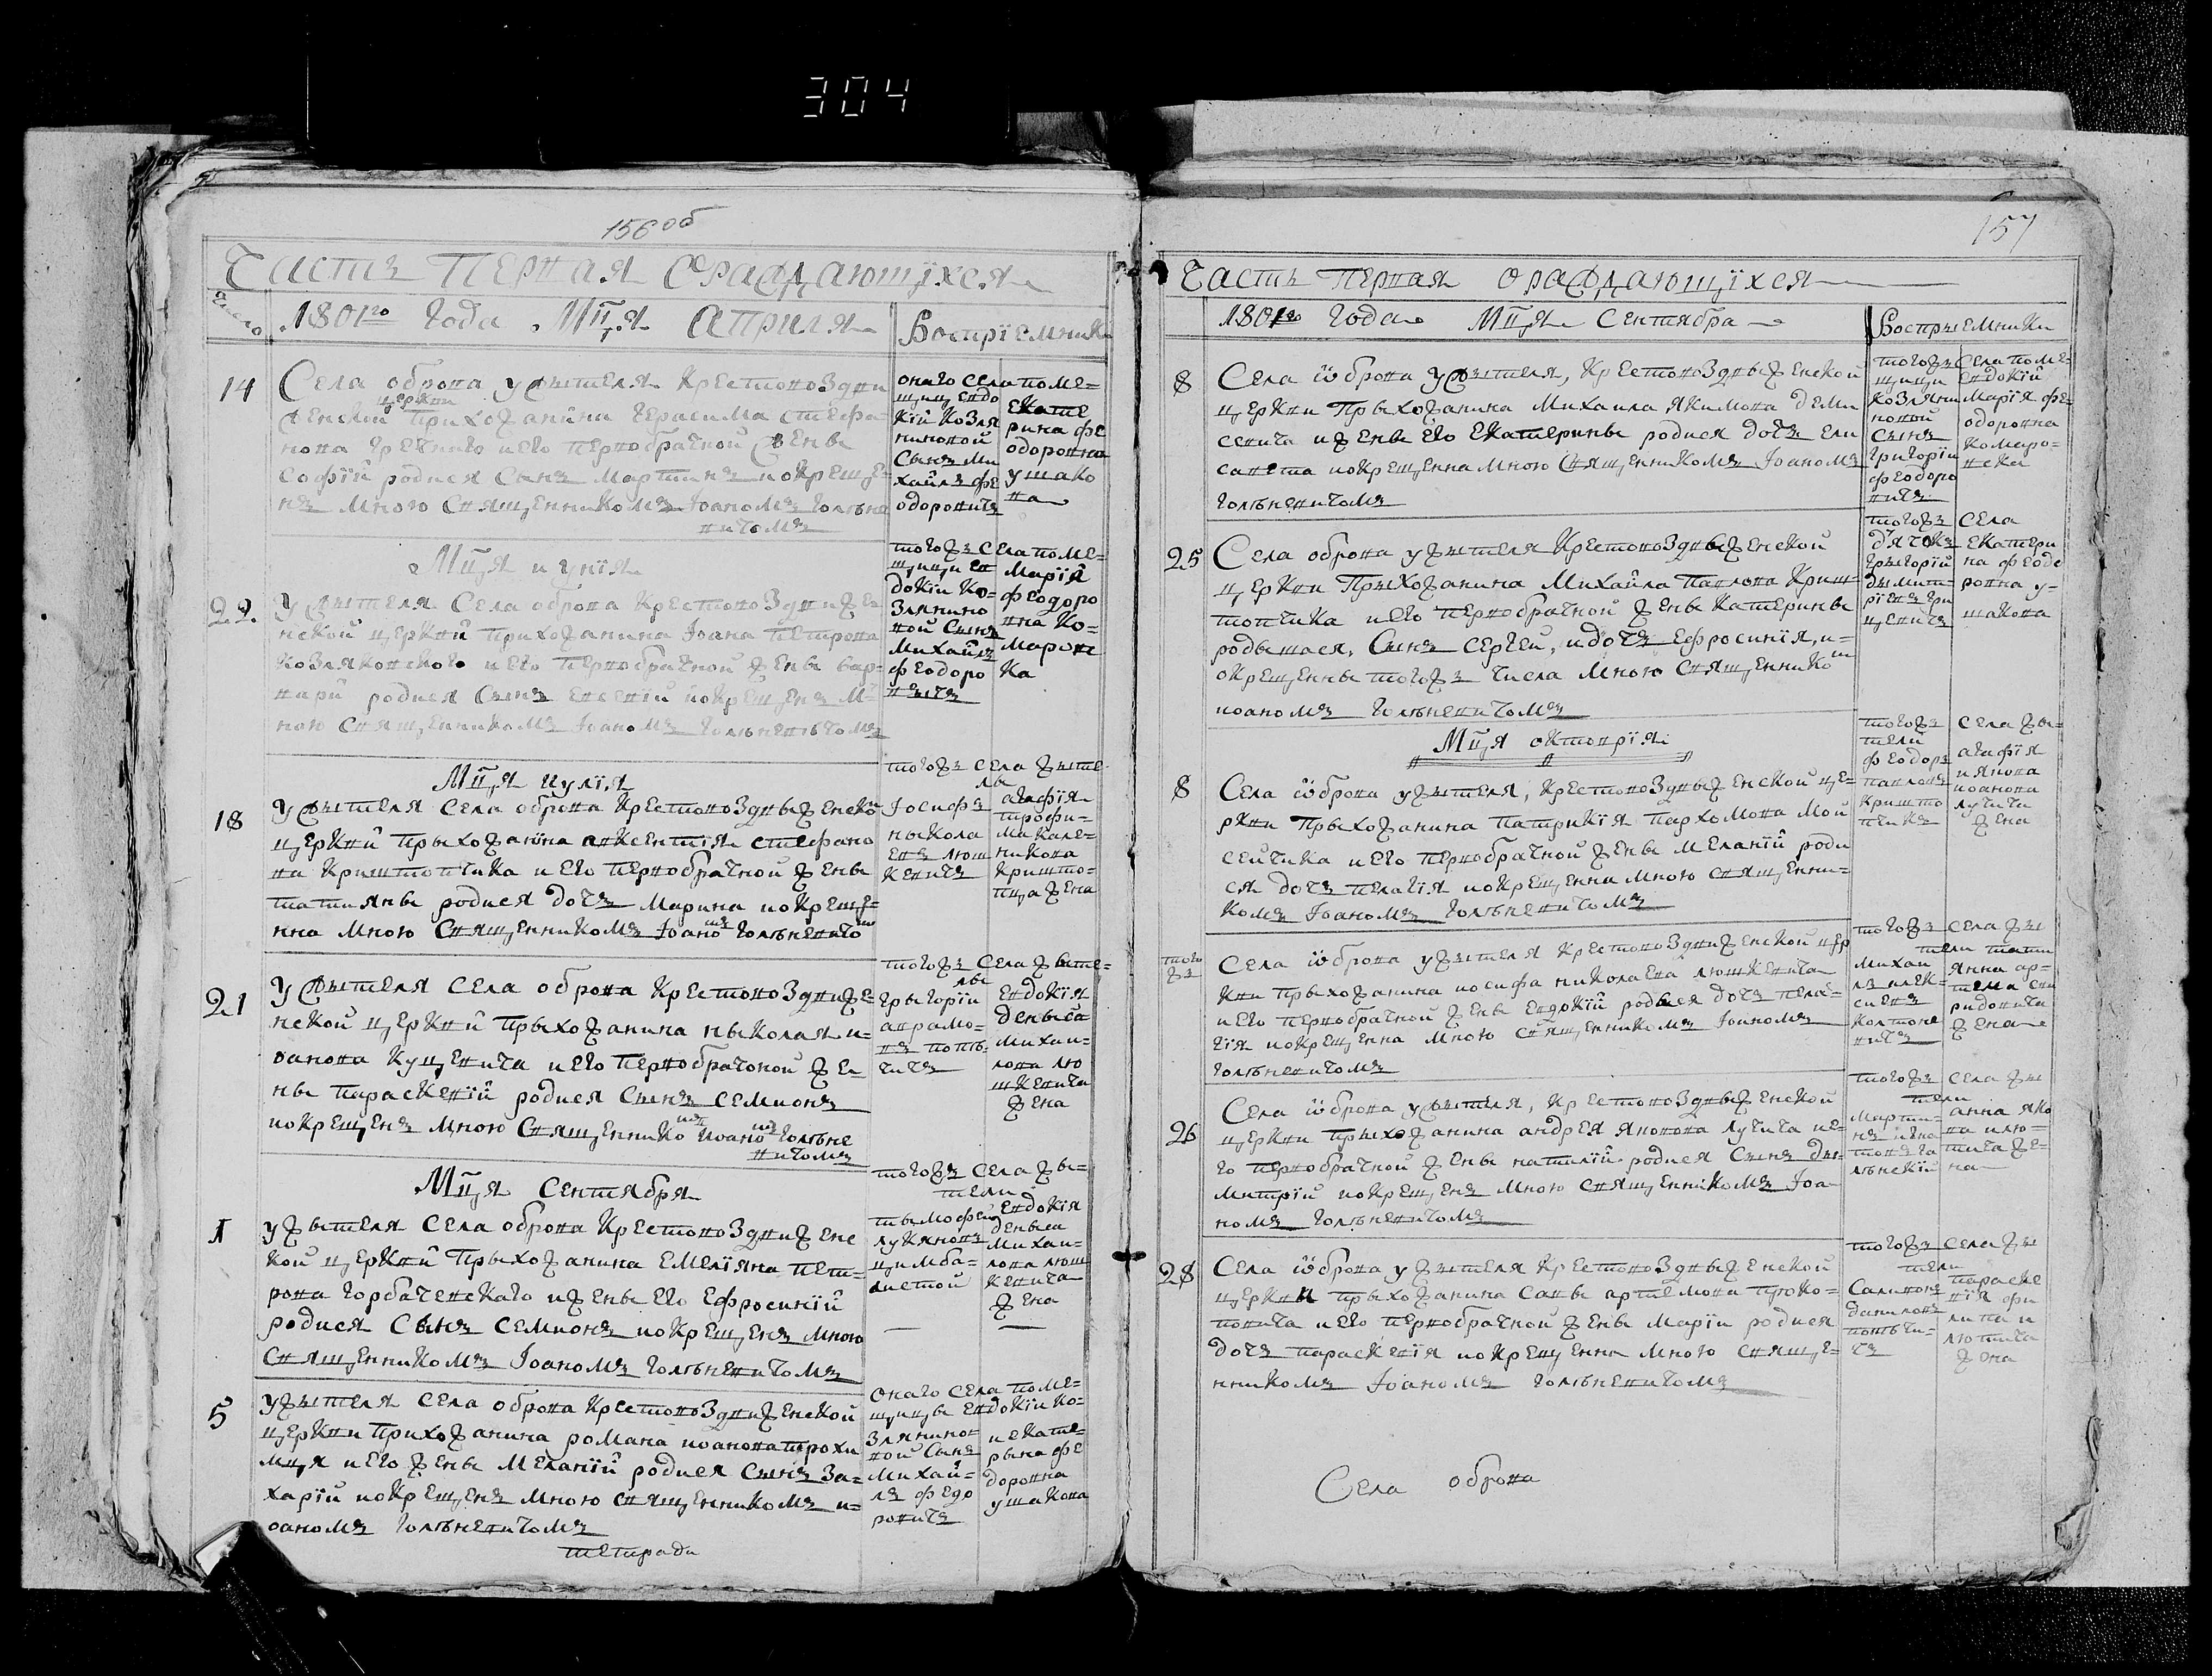 304
156 об
Часть Первая Ораждающихся
Число
1801го Года Мцᲂа Априля
Воспріемники
14
Села оброва у жытеля Крестовоздви
церкви
женской прихожанина Герасима Стефа-
нова и его первобрачной жены
Софіи родися Сынъ Мартинъ и окреще-
нъ Мною Священникомъ Іоаномъ Голъне
вичомъ
онаго села поме-
щицы Евдо
кіи Козля
ниновой
Сынъ Ми
хаилъ Фе
одоровичъ
Екате
рина Фе
одоровна
ушако
ва
Мця Иунія
22.
У жытеля Села оброва Крестовоздвиже
нской церкви прихожанина Іоана Петрова
Козляковского и его первобрачной жены Вар-
вари родися Сынъ Евсевій и окрещенъ М-
ною Священникомъ Іоаномъ Голъневичомъ
тогожъ села поме-
щици Ев
докіи Ко-
злянино
вой Сынъ
Михаилъ
Феодоро
вычъ
Марія
Феодоро
вна Ко-
маровс
ка
Мця Иулія
18
У жытеля Села оброва Крестовоздвыженской
церкви прыхожанина Авксентія Стефано
ва Криштопчика и его первобрачной жены
татияны родися дочъ Марина и окреще-
нна Мною Священникомъ Іоаномъ Голъневичом
тогожъ села жыте
лы
Іосифъ
ныкола
евъ люш
кевичъ
агафія
трофи-
ма кале-
никова
кришто-
пца жена
21
У жытеля Села оброва Крестовоздвиже-
нской церкви прыхожанина ныколая и-
оанова Куцевича и его первобрачоной же-
ны параскевіи родися Сынъ Семионъ
и окрещенъ Мною Священником Иоаном Голъне
вичомъ
тогожъ Села жыте-
лы
Грыгоріи
аврамо-
въ попъ-
чичъ
Евдокія
деныса
михаи-
лова лю
шкевича
жена
Мця Сентября
1
У жытеля Села оброва Крестовоздвиженс
кой церкви прыхожанина Емеліяна Пет-
рова Горбачевскаго и жены его Ефросиніи
родися Сынъ Семионъ и окрещенъ Мною
Священникомъ Іоаномъ Голъневичомъ
тогожъ Села жы-
тели
тымофей
лукяновъ
цимба-
листой
Евдокія
деныса
михаи-
лова люш
кевича
жена
5
У жытеля Села оброва Крестовоздвиженской
церкви прихожанина романа иоанова трохи
мця и его жены Меланіи родися Сынъ За-
харій и окрещенъ Мною Священникомъ и-
оаномъ Голъневичомъ
Онаго Села поме-
щицы Евдокіи Ко-
злянино-
вой Сынъ
Михай-
лъ Федо
ровичъ
и екате-
рына фе
доровна
ушакова
тетради
157
Часть Первая Ораждающихся
1801го Года Мця Сентября
Воспрыемники
8
Села оброва у жытеля, Крестовоздвыженской
церкви прыхожанина Михаила Якимова деми
севича и жены его Екатерины родися дочъ Ели
савета и окрещенна Мною Священникомъ Іоаномъ
Голъневичомъ
тогожъ Села поме-
щици Евдокій
козляни
новой
Сынъ
Григоріи
Феодоро
вичъ
Марія Фе-
одоровна
Комаро-
вска
25
Села оброва у жытеля Крестовоздвыженской
церкви прыхожанина Михайла Павлова Криш-
топчика и его первобрачной жены Катерины
родышася, Сынъ Сергеи, и дочъ Ефросинія, и-
окрещенны тогожъ числа Мною Священником
иоаномъ Голъневичомъ
тогожъ
дячокъ
Грыгорій
дымит-
ріевъ гри
цевичъ
Села
Екатери
на феодо
ровна у-
шакова
Мця октоврія
8
Села оброва у жытеля, Крестовоздвыженской це-
ркви прыхожанина Патрикія Пархомова Мои
сеичика и его первобрачной жены Меланіи роди
ся дочъ Пелагія и окрещенна Мною Священни-
комъ Іоаномъ Голъневичомъ
тогожъ
тели
феодоръ
павловъ
кришто
пчикъ
Села жы-
агафія
иянова
иоанова
лучича
жена
того
жъ
Села оброва у жытеля Крестовоздвиженской цер
кви прыхожанина иосифа николаева люшкевича
и его первобрачной жены Евдокіи родыся дочъ Пела-
гія и окрещенна Мною Священникомъ Іоаномъ
Голъневичомъ
тогожъ
Михаи
лъ алек-
сиевъ
колтоне
вичъ
Села жы
тели тати
янна ар-
тема сви
ридовича
жена
26
Села оброва у жытеля, Крестовоздвыженской
церкви прыхожанина андрея яновова лучича и е-
го первобрачной жены наталіи родися Сынъ ды-
митрій и окрещенъ Мною Священникомъ Іоа
номъ Голъневичомъ
тогожъ Села жы
тели
марти-
нъ ива
товъ га
лънскій
анна яко
ва илю-
тича же-
на
28
Села оброва у жытеля Крестовоздвыженской
церквы прыхожанина Савы артемова Проко-
повича и его первобрачной жены Маріи родися
дочъ параскевія и окрещенна Мною Священ-
нникомъ Іоаномъ Голъневичомъ
тогожъ Села жы
тели
Савионъ
даниловъ
попъчи-
чъ
параске
вія фи
липа и
лютича
жона
Села оброва